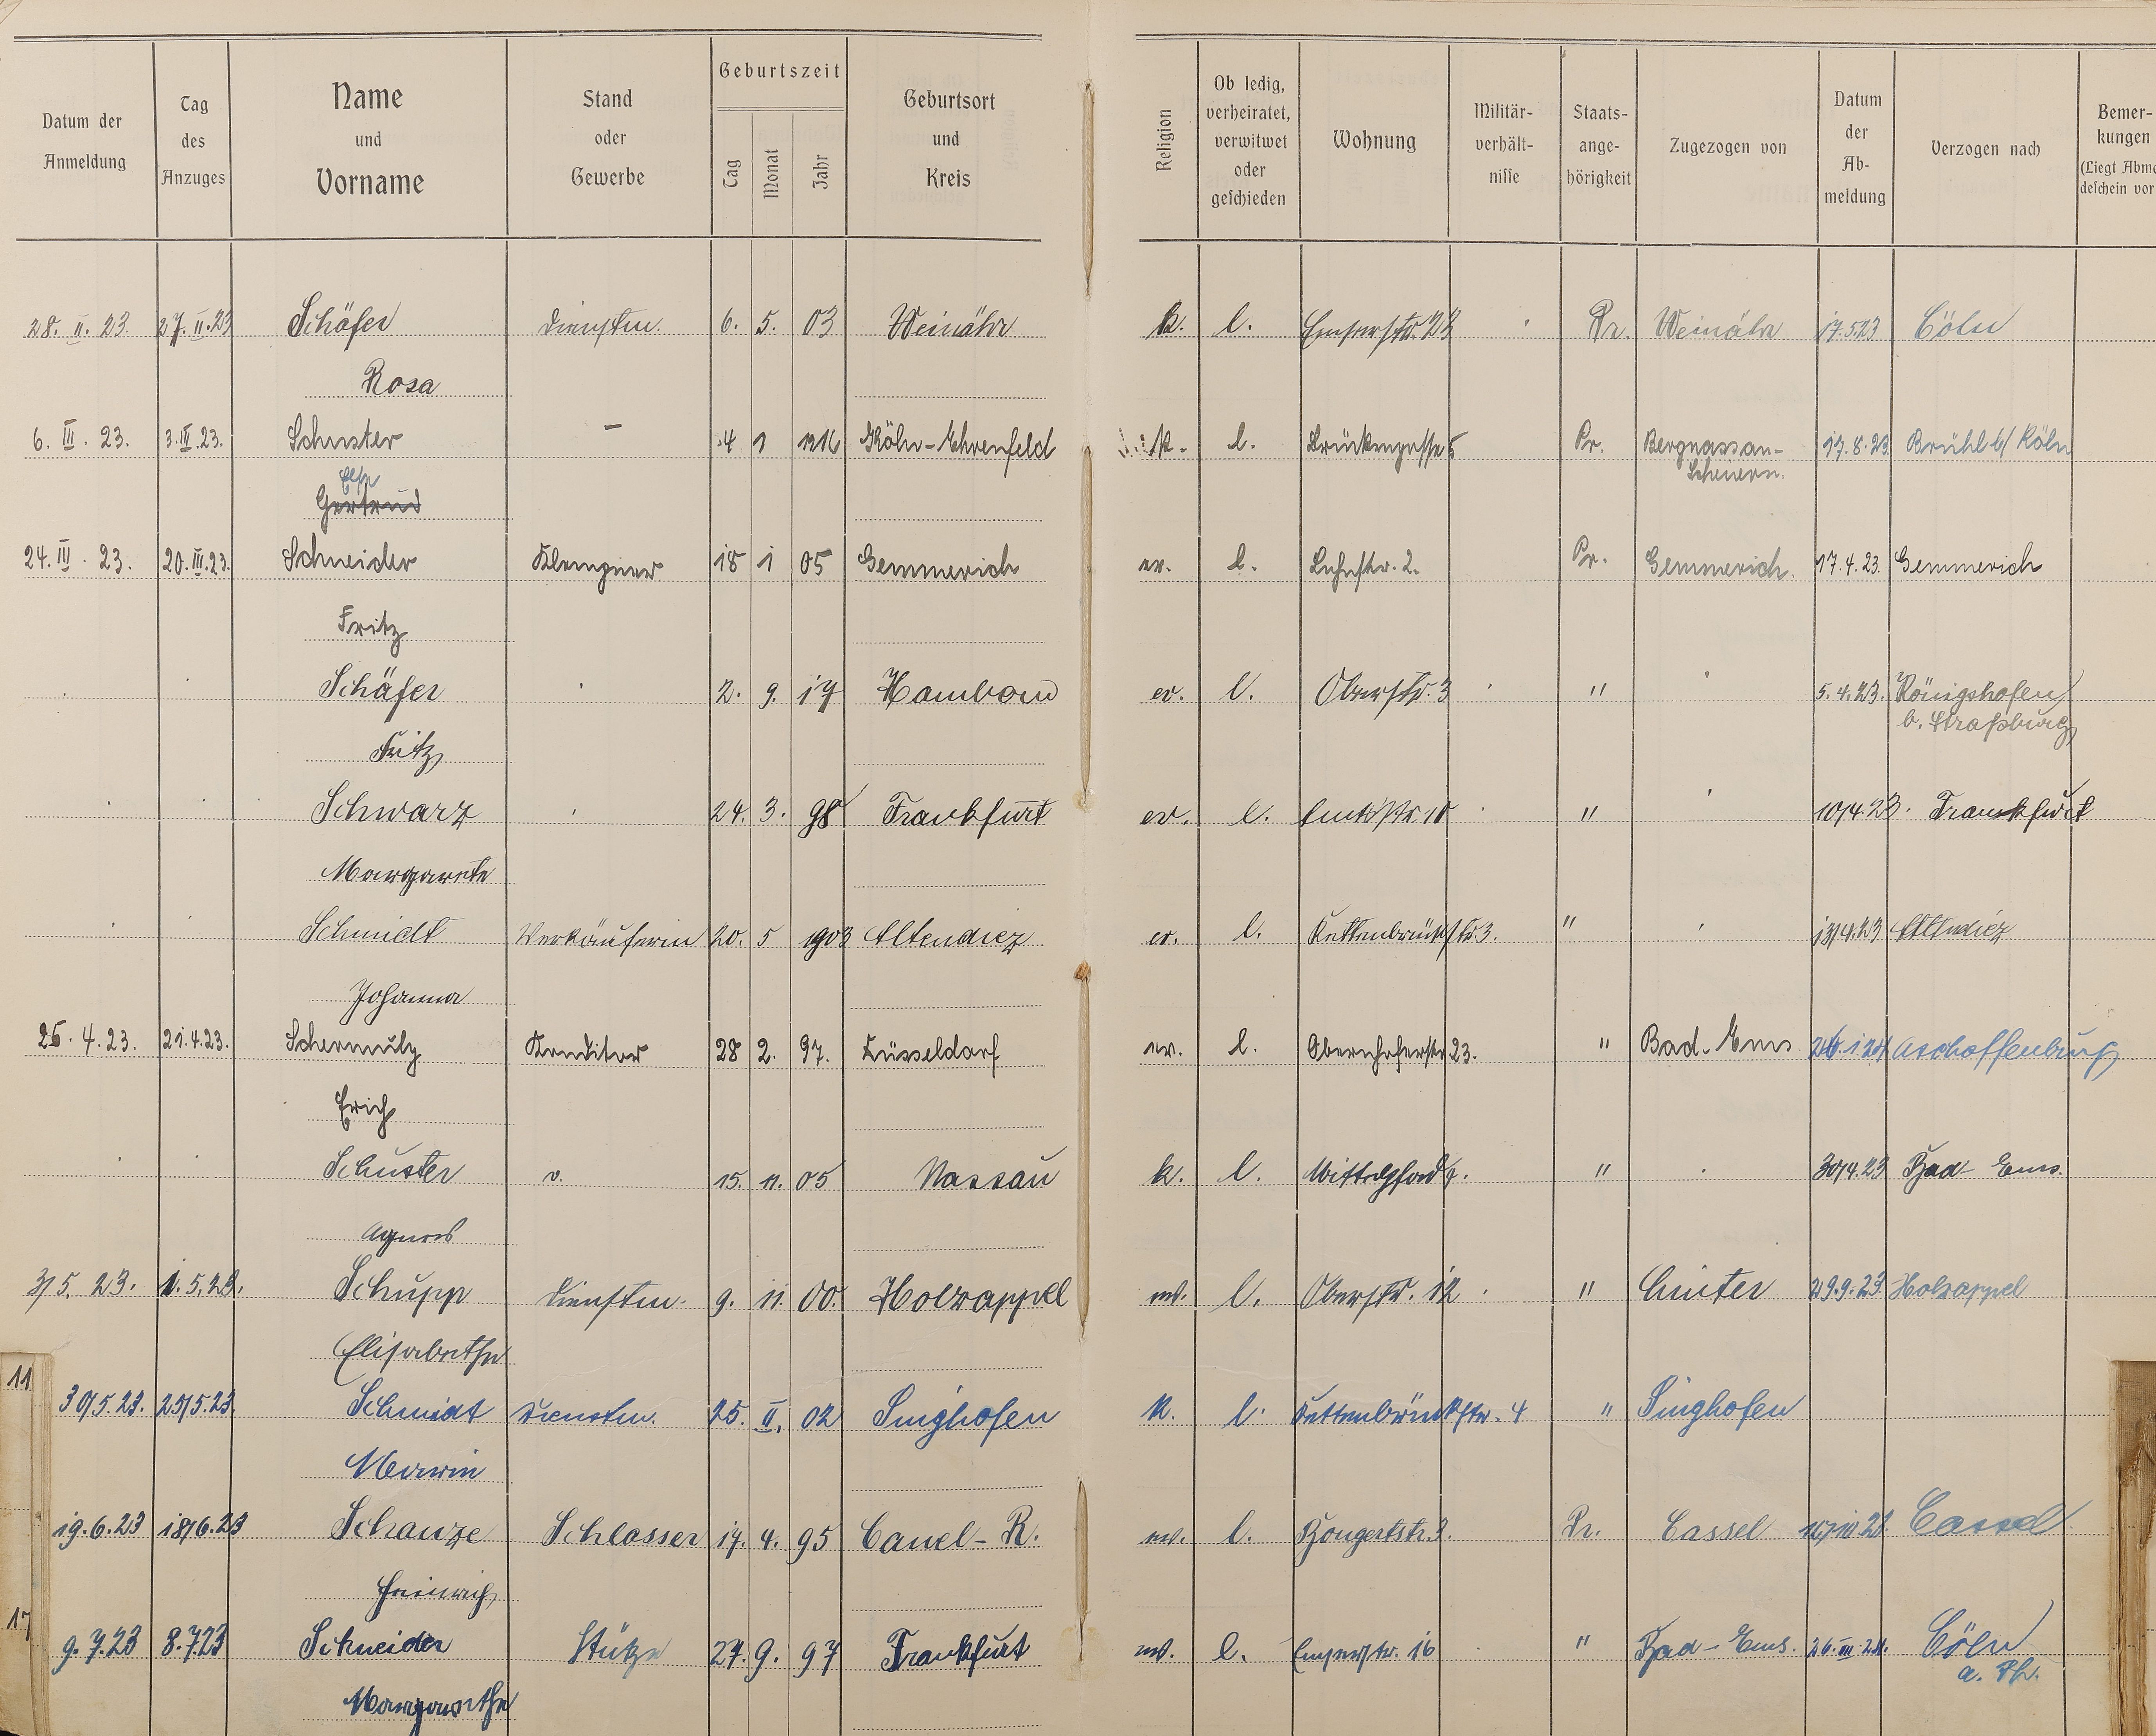 Datum der Anmeldung
Tag des Anzuges
Name und Vorname
Stand oder Gewerbe
Geburtszeit
Tag
Monat
Jahr
Geburtsort und Kreis
Religion
Ob ledig, verheiratet, verwitwet oder geschieden
Wohnung
Militär-verhält-nisse
Staats-ange-hörigkeit
Zugezogen von
Datum der Ab-meldung
Verzogen nach
Bemer-kungen
28. II. 23. 27. II. 23 Schäfer Dienstm. 6. 5. 03 Weinähr k. l. Emserstr. 23 Pr. Weinähr 17.5.23 Cöln
Rosa
6. III. 23. 3. III. 23. Schuster – 4 1 1916 Köln-Ehrenfeld k. l. Brückengasse 5 Pr. Bergnassau- 17.8.23. Brühl b/ Köln
Scheuern.
Else
Gertrud
24. III. 23. 20. III. 23. Schneider Klempner 18 1 05 Gemmerich ev. l. Lahnstr. 2. Pr. Gemmerich. 17.4.23. Gemmerich
Fritz
Schäfer 2. 9. 17 Hamborn ev. l. Oberstr. 3 " 5.4.23. Königshofen
b. Straßburg
Fritz
Schwarz 24. 3. 98 Frankfurt ev. l. 10 " 10/4.23. Frankfurt
Margarete
Schmidt Verkäuferin 20. 5 1903 Altendiez ev. l. Kettenbrückstr. 3. " 13/4.23 Altendiez
Johanna
4. 23. 21. 4. 23. Schermuly Konditor 28 2. 97. Düsseldorf ev. l. Obernhoferstr 23. " Bad-Ems Aschaffenburg
Erich
Schuster v. 15. 11. 05 Nassau k. l. " 30/4.23 Bad-Ems.
Agnes
3/5. 23. 1. 5. 23. Schupp Dienstm. 9. 11. 00. Holzappel ev. l. Oberstr. 12 " 29.9.23. Holzappel
Elisabethe
11
30/5.23. 25/5.23. Schmidt Dienstm. 25. II. 02 Singhofen k. l. Kettenbrückstr. 4 " Singhofen
Maria
19.6.23 18/6.23 Schanze Schlosser 17. 4. 95 Cassel-R. ev. l. Bongertstr. 3. Pr. Cassel Cassel
Heinrich
17
9.7.23 8.7.23 Schneider Stütze 27. 9. 97 Frankfurt ev. l. Emserstr. 16 " Bad-Ems. 26. III. 24. Cöln
a. Rh.
Margarethe